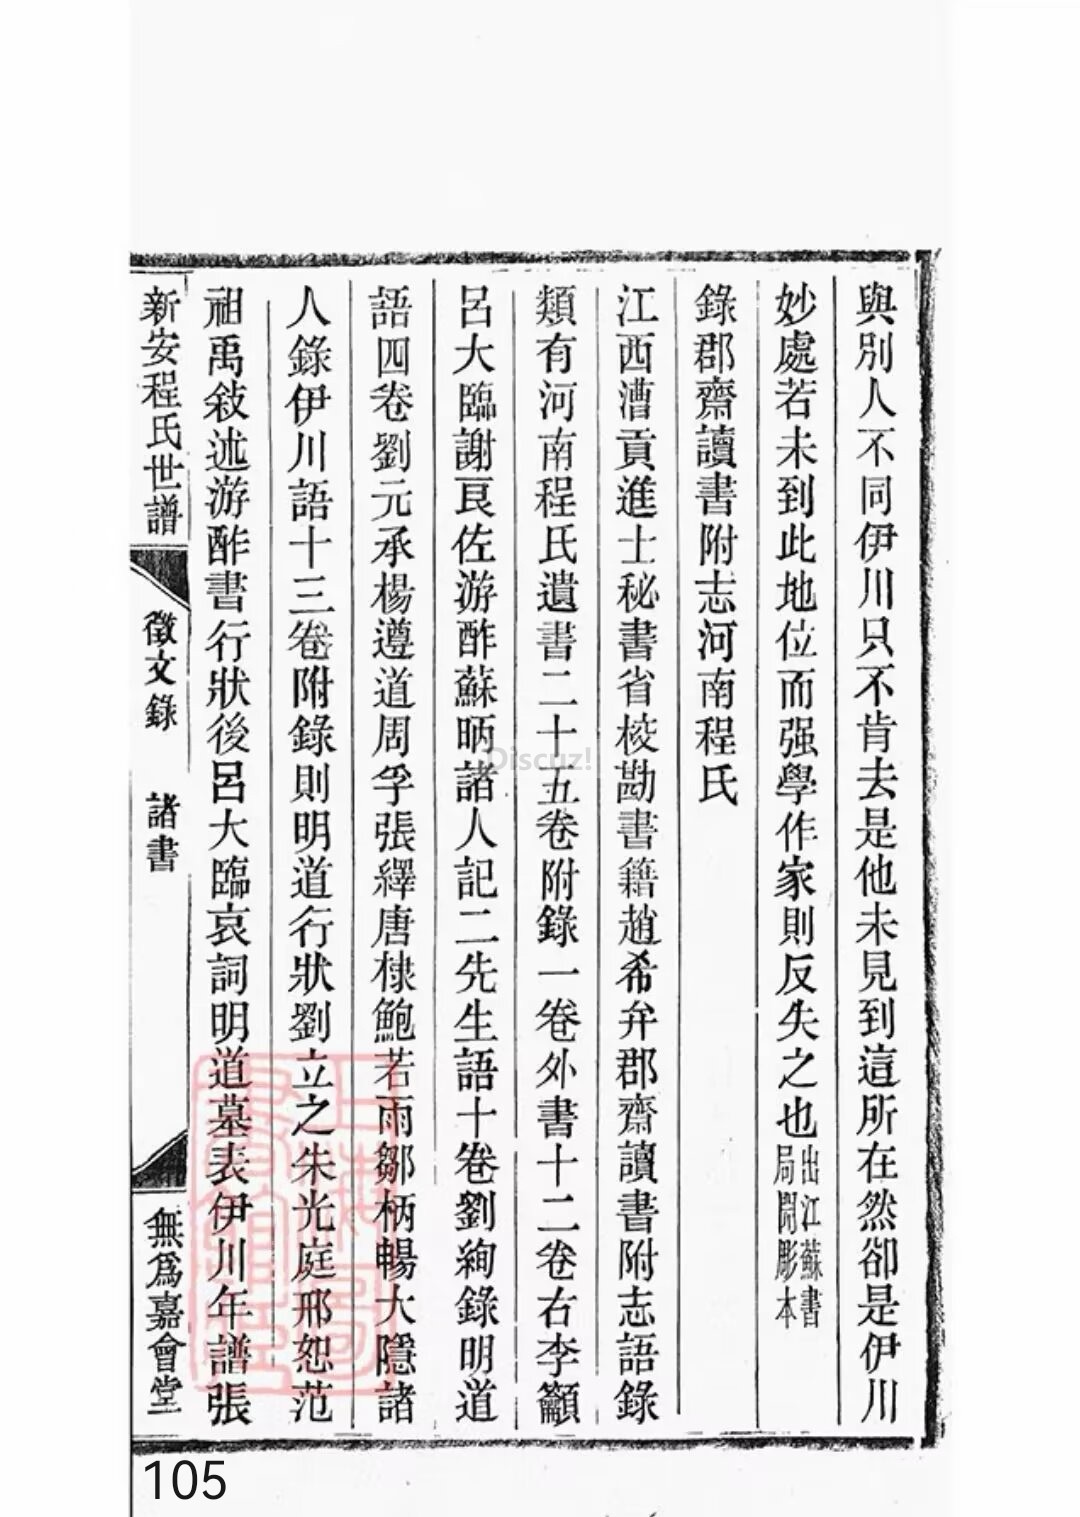 與別人不同伊川只不肯去是他未見到這所在然卻是伊川
妙處若未到此地位而强學作家則反失之也出江蘇書局開彫本
錄郡齋讀書附志河南程氏
江西漕貢進士秘書省校勘書籍趙希弁郡齋讀書附志語錄
類有河南程氏遺書二十五卷附錄一卷外書十二卷右李籲
呂大臨謝良佐游酢蘇昞諸人記二先生語十卷劉絢錄明道
語四卷劉元承楊遵道周孚張繹唐棣鮑若雨鄒柄暢大隱諸
人錄伊川語十三卷附錄則明道行狀劉立之朱光庭邢恕范
祖禹敍述游酢書行狀後呂大臨哀詞明道墓表伊川年譜張
新安程氏世譜
徵文錄
諸書
無爲嘉會堂
Discuz!
105